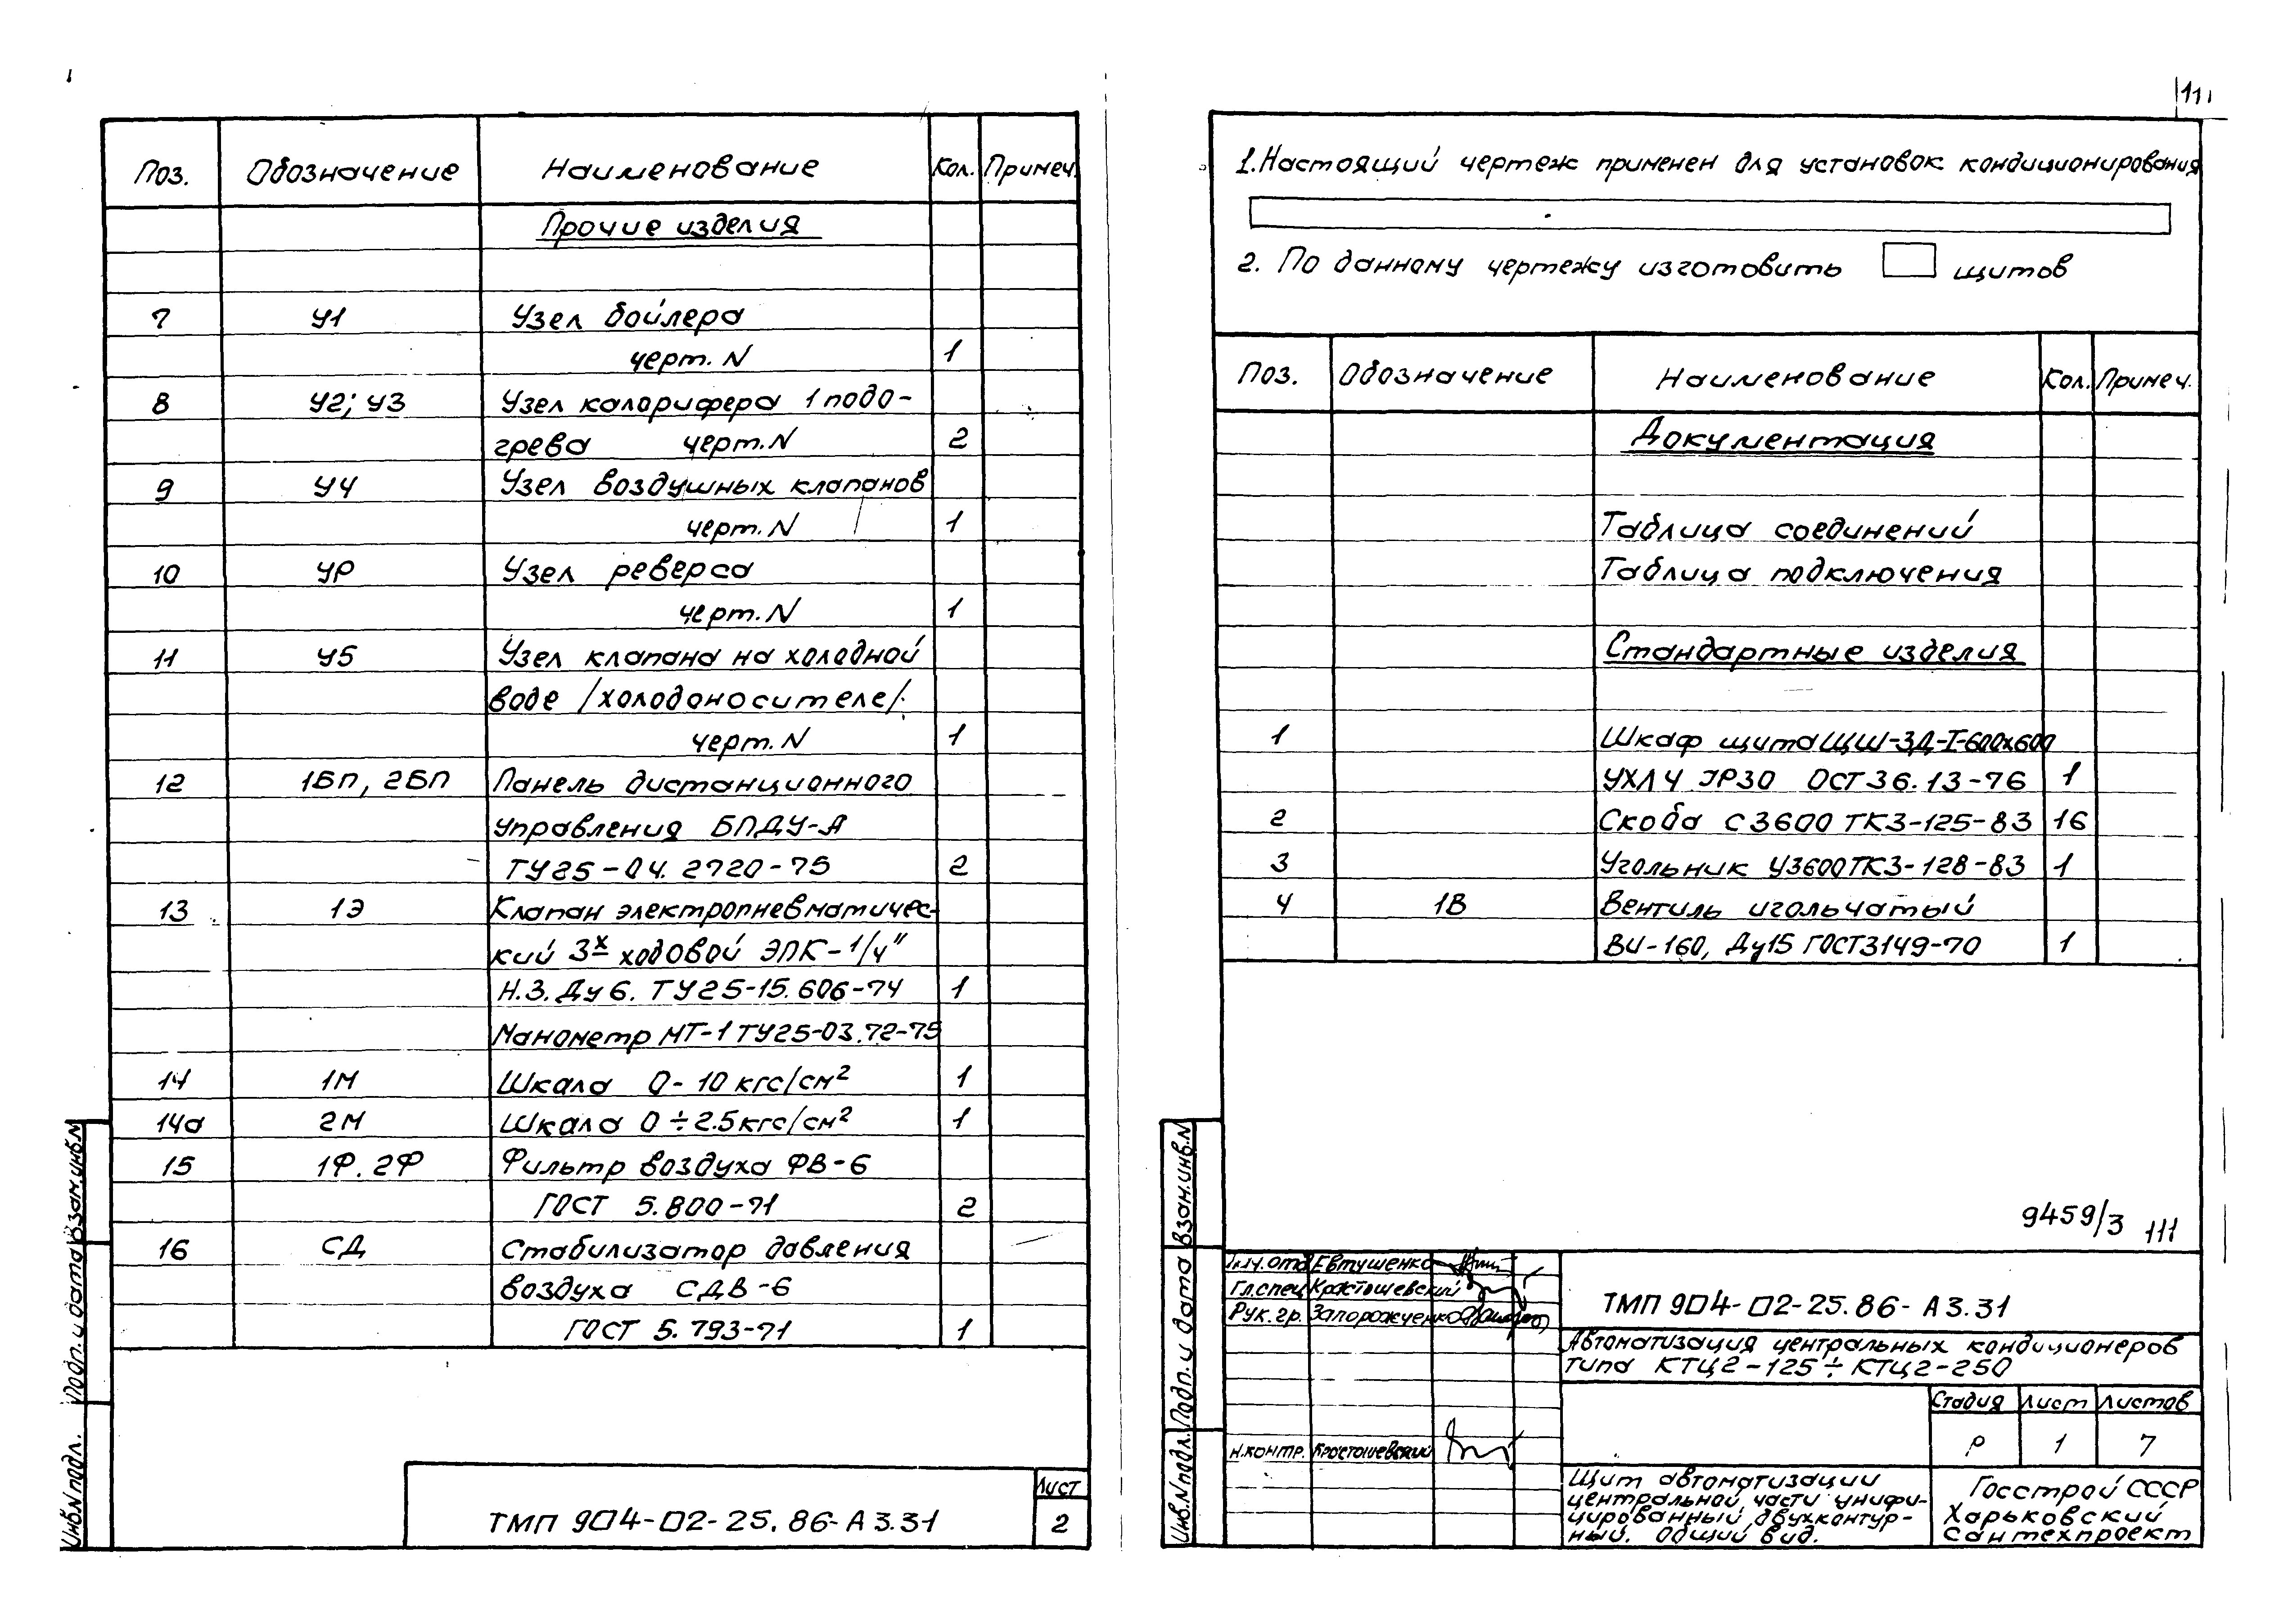 Поз. Обозначение Наименование Кол. Примеч.
Прочие изделия
7 У1 Узел бойлера
черт. N 1
8 У2; У3 Узел калорифера 1 подо-
грева черт. N 2
9 У4 Узел воздушных клапанов
черт. N 1
10 УР Узел реверса
черт. N 1
11 У5 Узел клапана на холодной
воде /холодоносителе/.
черт. N 1
12 1БП, 2БП Панель дистанционного
управления БПДУ-А
ТУ25-04. 2720-75 2
13 1Э Клапан электропневматичес-
кий 3х ходовой ЭПК-1/4"
Н.З. Ду 6. ТУ25-15. 606-74 1
Манометр МТ-1 ТУ25-03.72-75
14 1М Шкала 0- 10 кгс/см² 1
14а 2М Шкала 0 ÷ 2.5 кгс/см² 1
15 1Ф. 2Ф Фильтр воздуха ФВ-6
ГОСТ 5.800-71 2
16 СД Стабилизатор давления
воздуха СДВ-6
ГОСТ 5.793-71 1
Взам.инв.N
Подп. и дата
Инв.N подл.
ТМП 904-02-25.86-А3.31
Лист
2
111
1. Настоящий чертеж применен для установок кондиционирования
2. По данному чертежу изготовить щитов
Поз. Обозначение Наименование Кол. Примеч.
Документация
Таблица соединений
Таблица подключения
Стандартные изделия
1 Шкаф щита ЩШ-ЗД-I-600х600
УХЛ4 IP30 ОСТ 36.13-76 1
2 Скоба С3600 ТК3-125-83 16
3 Угольник У3600 ТК3-128-83 1
4 1В Вентиль игольчатый
ВИ-160, Ду15 ГОСТ3149-70 1
9459/3 111
Взам.инв.N
Подп. и дата
Инв.N подл.
Нач.отд Евтушенко
Гл.спец Красташевский
Рук. гр. Запорожченко
н.контр. Красташевский
ТМП 904-02-25.86-А3.31
Автоматизация центральных кондиционеров
типа КТЦ2-125÷КТЦ2-250
Стадия Лист Листов
Р 1 7
Щит автоматизации
центральной части унифи-
цированный двухконтур-
ный. Общий вид.
Госстрой СССР
Харьковский
Сантехпроект